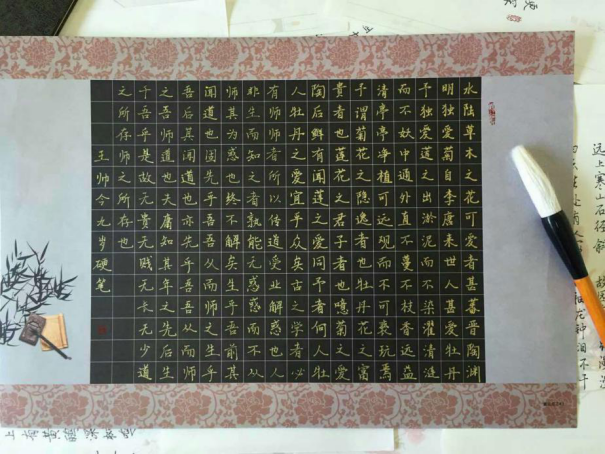 水陆草木之花可爱者甚蕃晋陶渊
明独爱菊自李唐来世人甚爱牡丹
予独爱莲之出淤泥而不染濯清涟
而不妖中通外直不蔓不枝香远益
清亭亭净植可远观而不可亵玩焉
予谓菊花之隐逸者也牡丹花之富
貴者也莲花之君子者也噫菊花之爱
陶后鲜有闻莲之爱同予者何人牡
人牡丹之爱宜乎众矣古之学者必
有师师者所以传道受业解惑也人
非生而知之者孰能无惑惑而不从
师其为惑也终不解矣生乎吾前其
闻道也固先乎吾吾从而师之生乎
吾后其闻道也亦先乎吾吾从而师
之吾师道也夫庸知其年之先后生
于吾乎是故无贵无贱无长无少道
之所存师之所存也
远上寒山石径斜